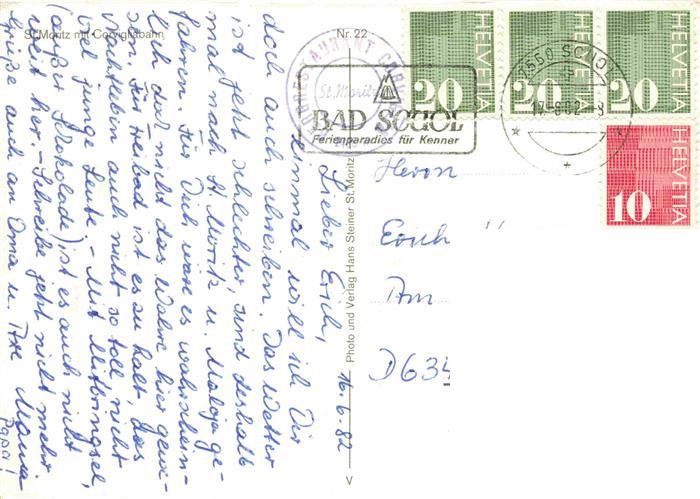 St. Moritz mit Corvigliabahn
Nr. 22
HELVETIA
20
HELVETIA
20
HELVETIA
20
HELVETIA
10
St. Moritz
BAD SCUOL
Ferienparadies für Kenner
7550 SCUOL
Photo und Verlag Hans Steiner St. Moritz
V
16.6.82
Lieber Erich,
einmal will ich Dir
doch auch schreiben. Das Wetter
ist jetzt schlechter, sind deshalb
mal nach St. Moritz u. Maloja ge-
fahren. Für Dich wäre es wahrschein-
lich doch nicht das Wahre hier gewe-
sen. Für Freibad ist es zu kalt, das
Nachtleben auch nicht so toll, nicht
viel junge Leute. - Mit Mitbringsel,
(außer Schokolade) ist es auch nicht
weit her. - Schreibe jetzt nicht mehr.
Grüße auch an Oma u. Ihre Mama
Papa!
Herrn
Erich
Am
D634